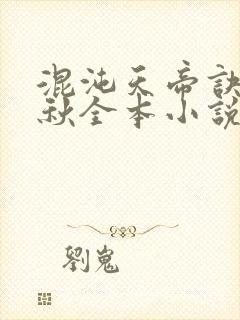 混沌天帝訣
秋全本小說
劉嵬